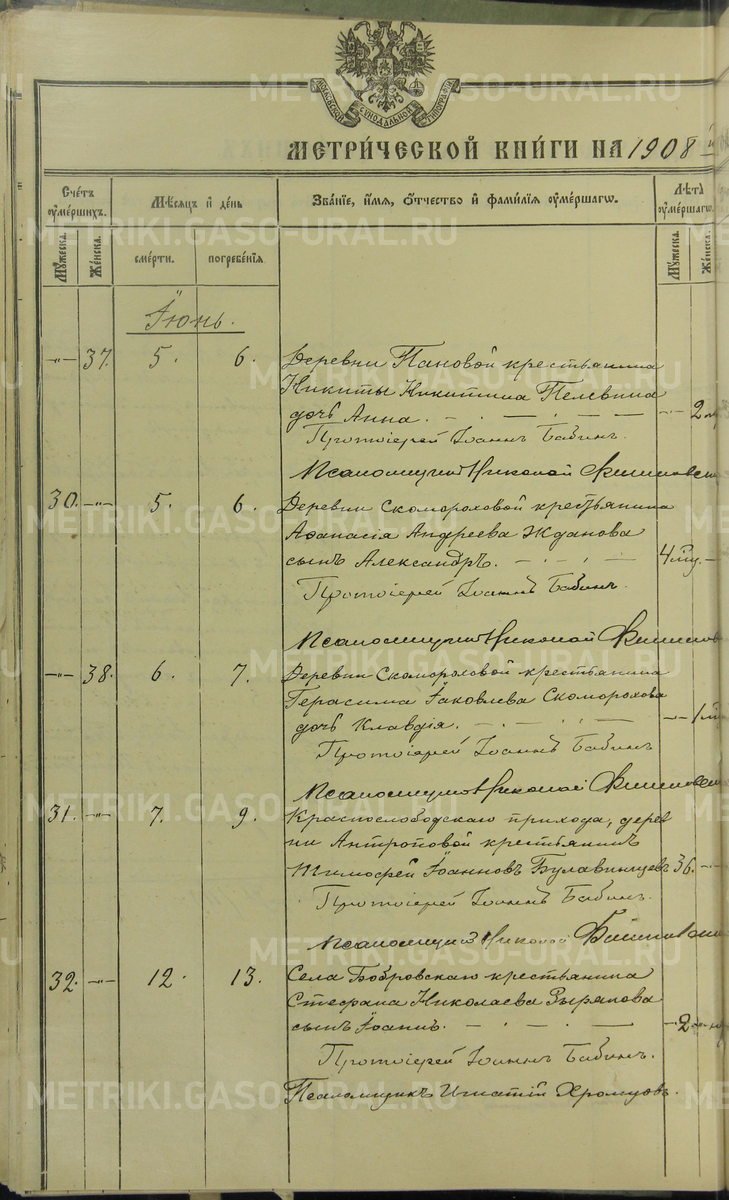 МОСКОВСКОЙ СѴНОДАЛЬНОЙ ТИПОГРАФІИ
МЕТРИ́ЧЕСКОЙ КНИ́ГИ НА 1908 й
Счетъ ᲂумершихъ.
Мѣсяцъ и день
Званіе, имя, отчество и фамилія ᲂумершагѡ.
Лѣта ᲂумершагѡ.
Мужеска.
Женска.
смерти.
погребенія
Мужеска.
Женска.
Іюнь.
-"- 37. 5. 6. Деревни Пановой крестьянина
Никиты Никитина Пелевина
дочь Анна. -"- 2
Протоіерей Іоаннъ Бабинъ.
Псаломщикъ Николай
30. -"- 5. 6. Деревни Скомороховой крестьянина
Аѳанасія Андреева Жданова
сынъ Александръ. 4
Протоіерей Іоаннъ Бабинъ.
Псаломщикъ Николай
-"- 38. 6. 7. Деревни Скомороховой крестьянина
Герасима Іаковлева Скоморохова
дочь Клавдія. -"- 1
Протоіерей Іоаннъ Бабинъ
Псаломщикъ Николай
31. -"- 7. 9. Краснослободскаго прихода, дерев
ни Антроповой крестьянинъ
Тимоѳей Іоанновъ Булавинцевъ 36. -"-
Протоіерей Іоаннъ Бабинъ.
Псаломщикъ Николай
32. -"- 12. 13. Села Бобровскаго крестьянина
Стефана Николаева Зырянова
сынъ Іоаннъ. 2
Протоіерей Іоаннъ Бабинъ.
Псаломщикъ Игнатій Хромцовъ.
METRIKI.GASO-URAL.RU